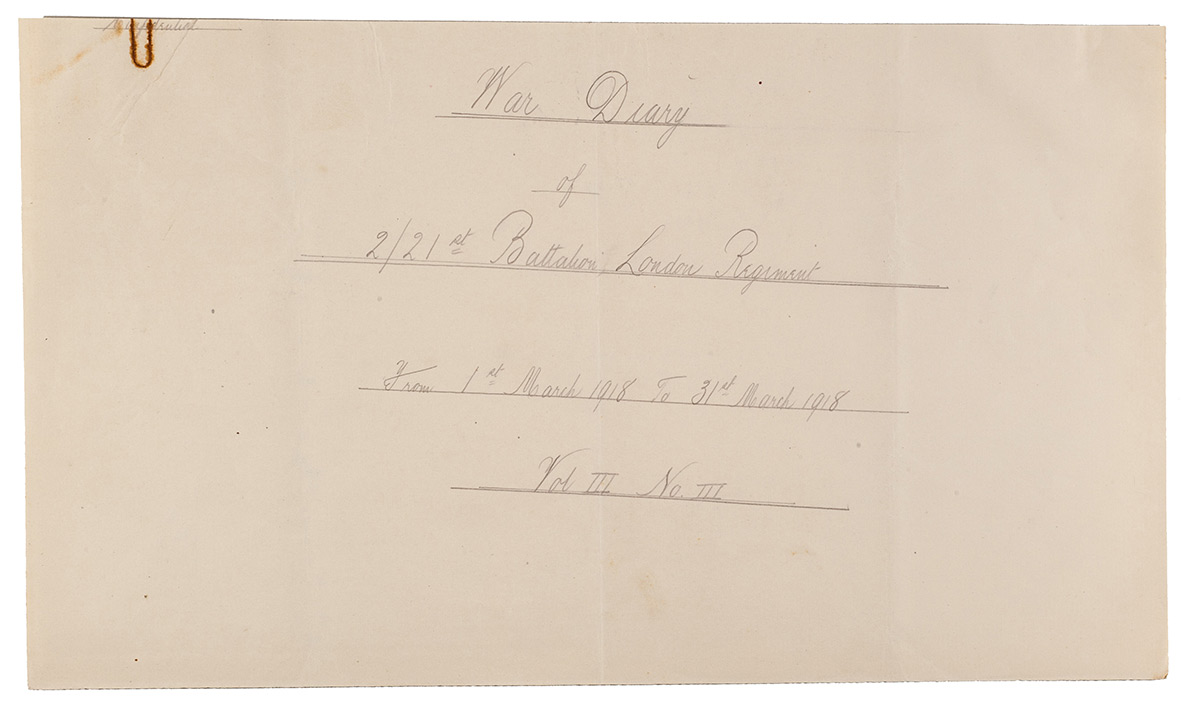 War Diary
of
2/21st Battalion, London Regiment
From 1st March 1918 To 31st March 1918
Vol III No. III